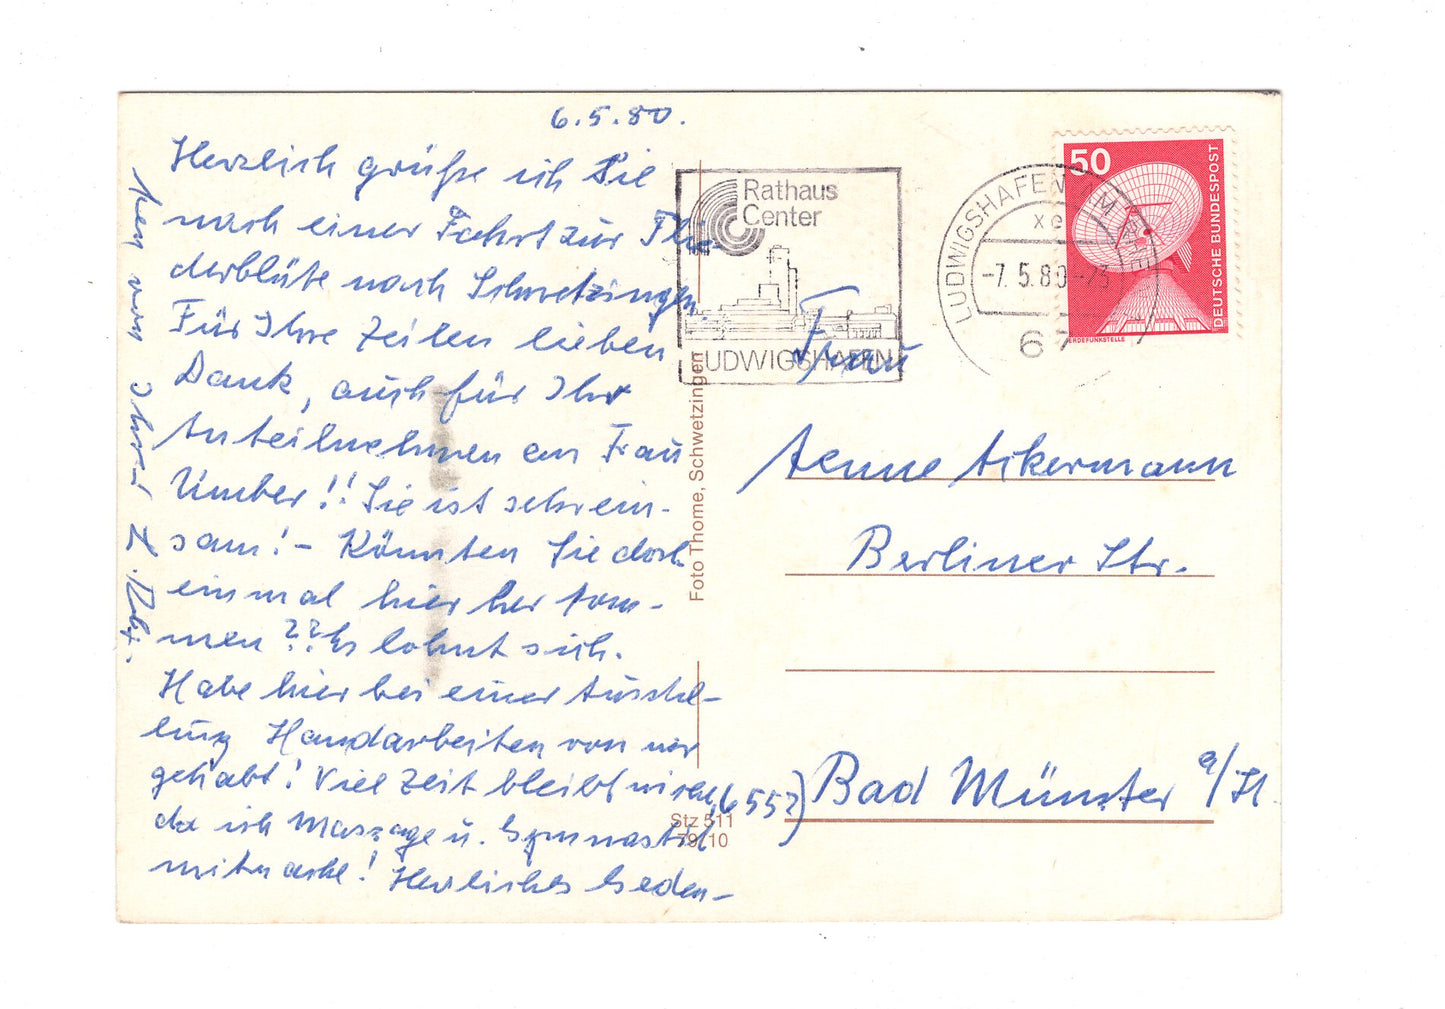 6.5.80.
Herzlich grüße ich Sie
nach einer Fahrt zur Flie-
derblüte nach Schwetzingen.
Für Ihre Zeilen lieben
Dank, auch für Ihr
Anteilnehmen an Frau
Umber!! Sie ist sehr ein-
sam! - Könnten Sie doch
einmal hier her kom-
men?? Es lohnt sich.
Habe hier bei einer Ausstel-
lung Handarbeiten von mir
gehabt! Viel Zeit bleibt nicht,
da ich Massage u. Gymnastik
mitmache! Herzliches Geden-
ken von Ihrer
Rathaus
Center
LUDWIGSHAFEN
LUDWIGSHAFEN AM RHEIN
xe
-7.5.80-23
67
50
DEUTSCHE BUNDESPOST
ERDEFUNKSTELLE
Foto Thome, Schwetzingen
Stz 511
79/10
Frau
Aenne Ackermann
Berliner Str.
(6552) Bad Münster a/St.